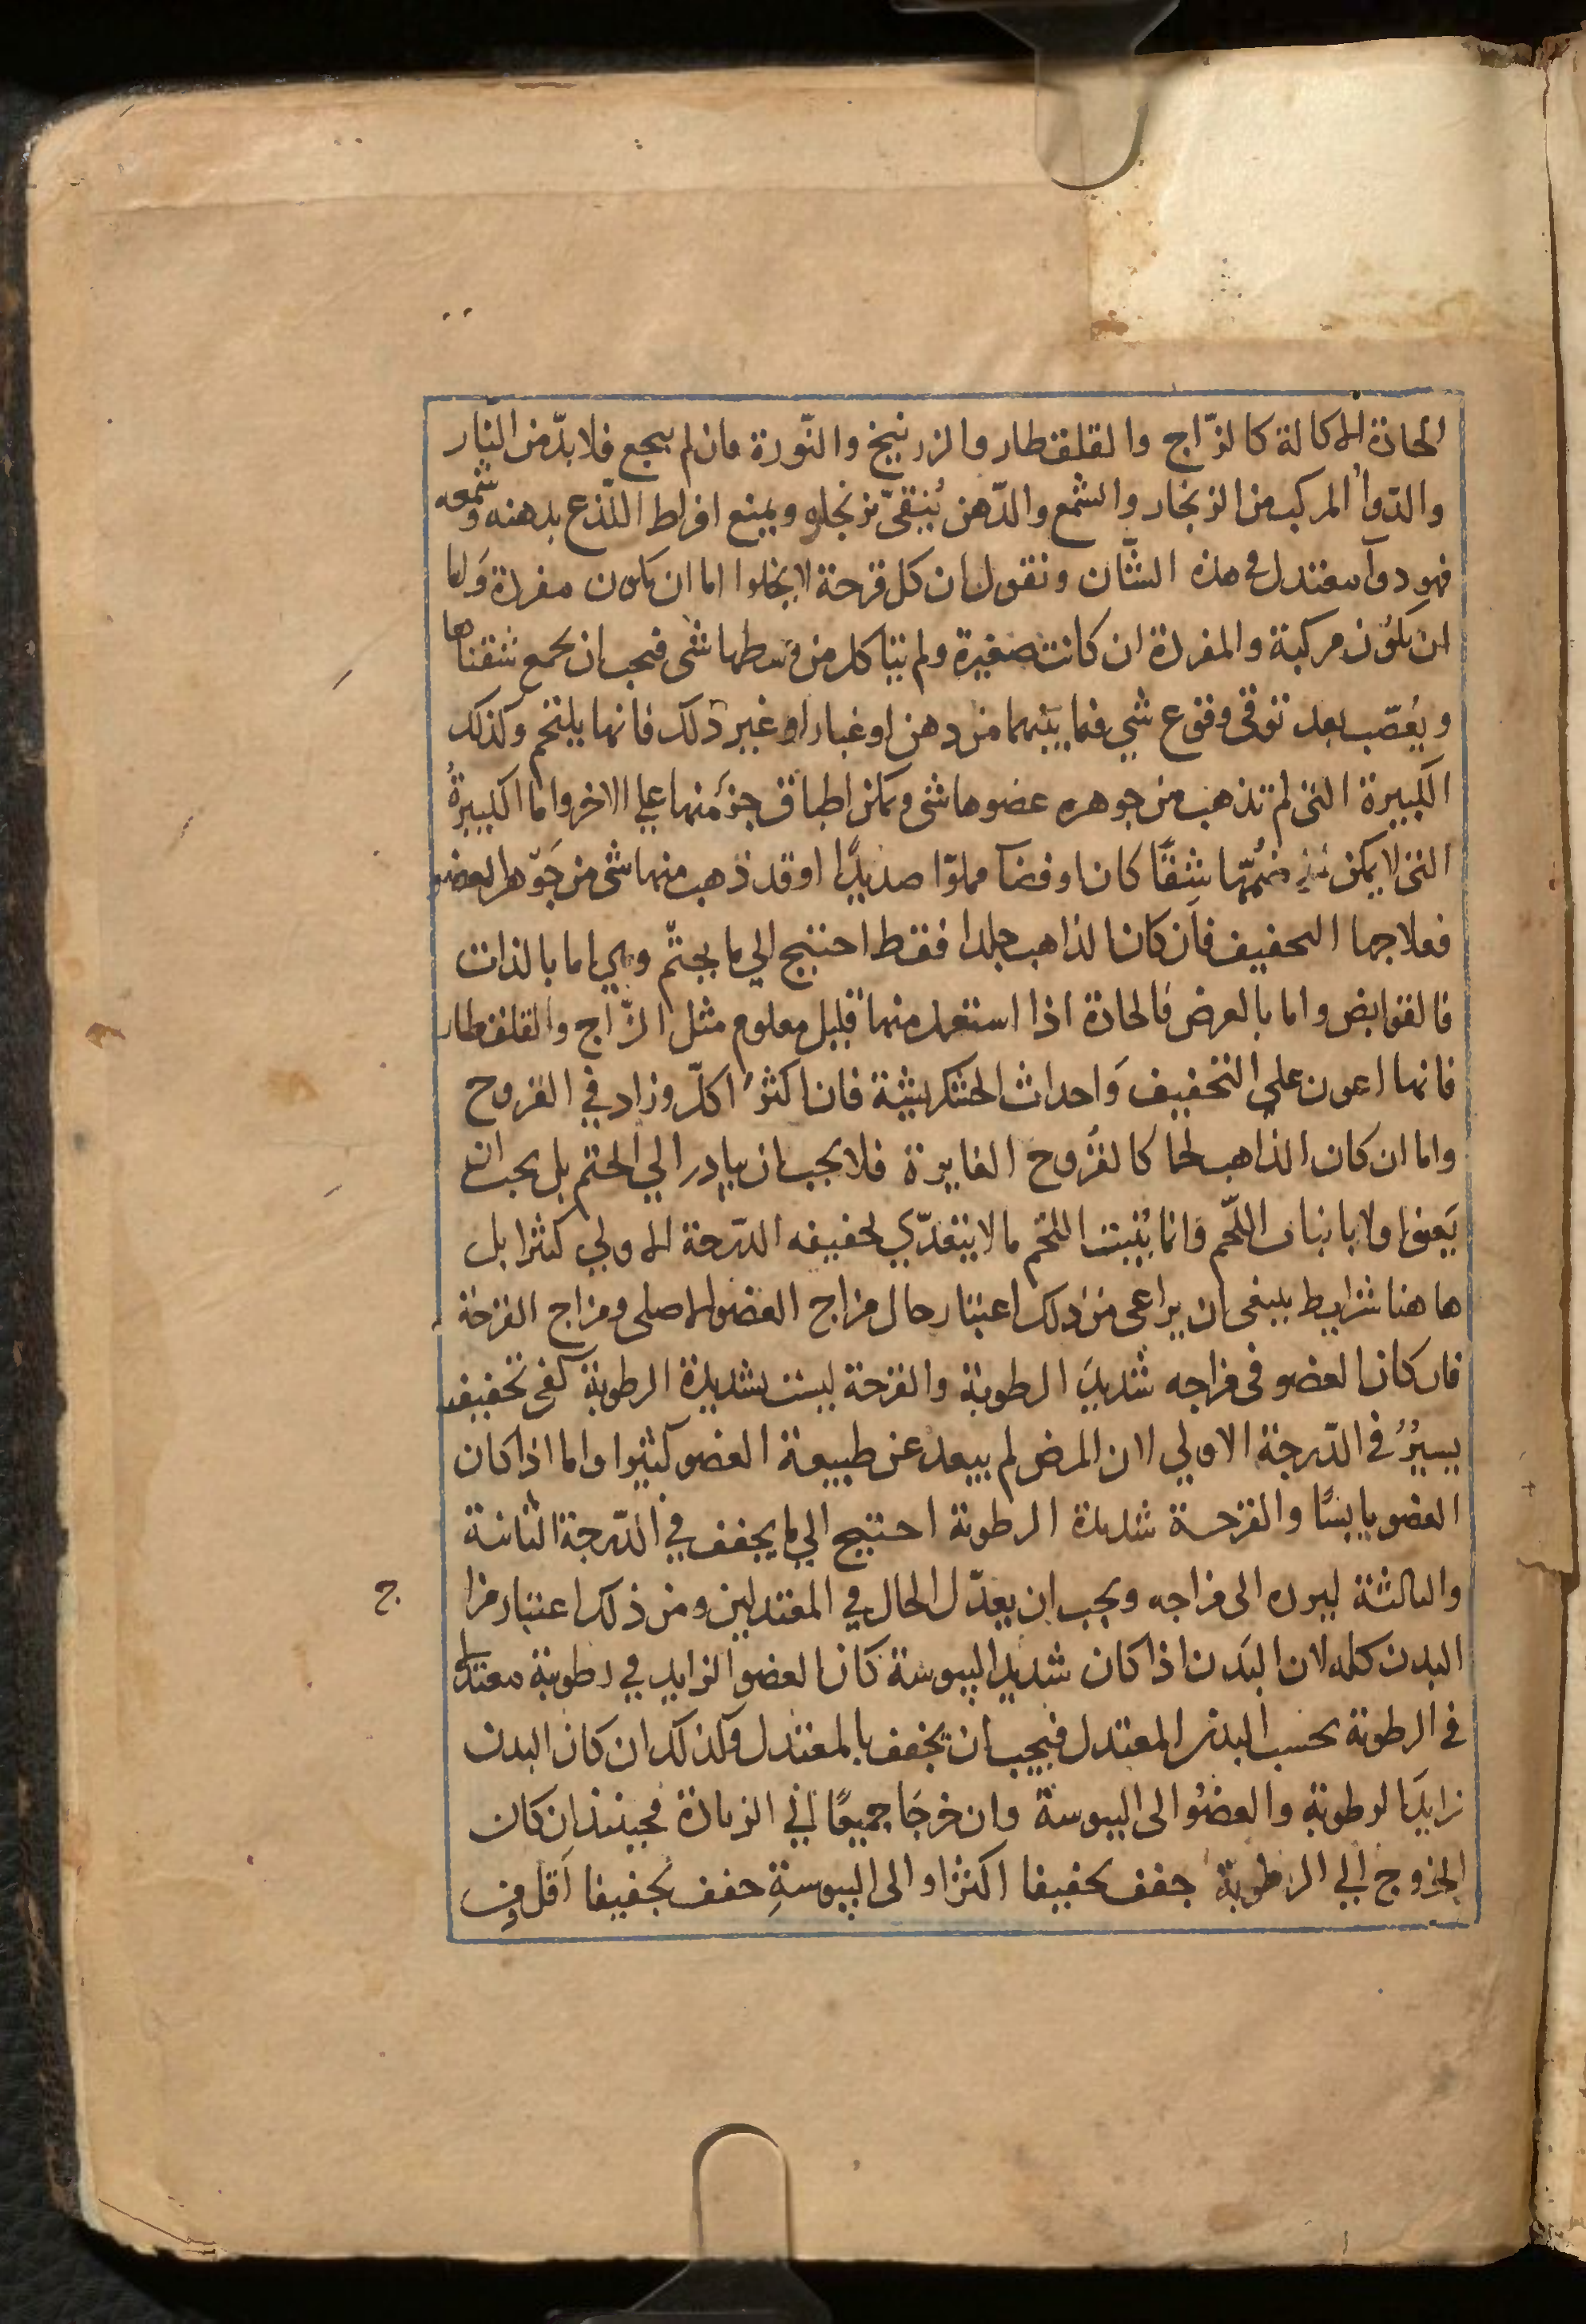 الحادة الاكالة كالزّاج والقلقطار والزرنيخ والنّورة فان لم ينجع فلا بدّ من النّار
والدّوأ المركب من الزنجار والشمع والدّهن يُنقىّ بزنجاره ويمنع افراط اللّذع بدهنه وشمعه
فهو دوآ معتدل في هذه الشّان ونقول ان كل قرحة لا يخلوا اما ان يكون مفردة وَاما
ان يكوُن مركبة والمفردة ان كانت صغيرة ولم يتاكل من وسطها شى فيجب ان يجمع شقتاها
ويُعصّب بعد توقى وقوع شي فيما بينهما من دهن او غبار او غير ذلك فانها يلتحم وكذلك
الكبيرة التى لم تذهب من جوهره عضوها شى ويمكن اطباق جزء منها علي الاخر واما الكبيرةُ
التى لا يمكن ضمُّها شقًا كان او فضآ مملوّا صديدًا او قد ذهب منها شى من جَوهر العضو
فعلاجها التجفيف فاَن كان الذاهب جلدا فقط احتيج الي ما يختّم وهي اما بالذات
فالقوابض واما بالعرض فَالحادة اذا استعمل منها قليل معلوم مثل الزّاج والقلقطار
فانها اعون على التجفيف وَاحداث الخشكريشة فان اكثرَ اكلّ وزاد في القروح
واما ان كان الذاهب لحما كالقُروح الغايرة فلا يجب ان يبادر الي الختم بل يجب ان
يَعنى اولا بانبات اللّحم وَانما يُنبت اللحم ما لا يتعدّي تجفيفه الدّرجة الاولي كثيرا بل
هاهنا شرايط ينبغى ان يراعى من ذلك اعتبار حال مزاج العضو الاصلى ومزاج القرحة
فان كان العضو فى مزاجه شديدَ الرطوبة والقرحة ليست بشديدة الرطوبة كفى تجفيف
يسيرُ فى الدّرجة الاولي لان المرض لم يبعد عن طبيعة العضو كثيرا واما اذا كان
العضو يابسًا والقرحة شديدة الرطوبة احتيج الي ما يجفف في الدّرجة الثانية
والثالثة ليرده الى مزاجه ويجب ان يعدّل الحال في المعتدلين ومن ذلك اعتبار مزا
ج
البدن كله لان البدَن اذا كان شديد اليبوسة كان العضو الزايد في رطوبة معتدلا
فى الرطوبة بحسب البدن المعتدل فيجب ان يجفف بالمعتدل وكذلك ان كان البدن
زايدَ الرطوبة والعضوُ الى اليبوسة وان خرجَا جميعًا الي الزيادة فحينئذ ان كان
الخروج الي الرطوبة جفف تجفيفا اكثر او الى اليبوسةِ جفف تجفيفا اَقل ومن